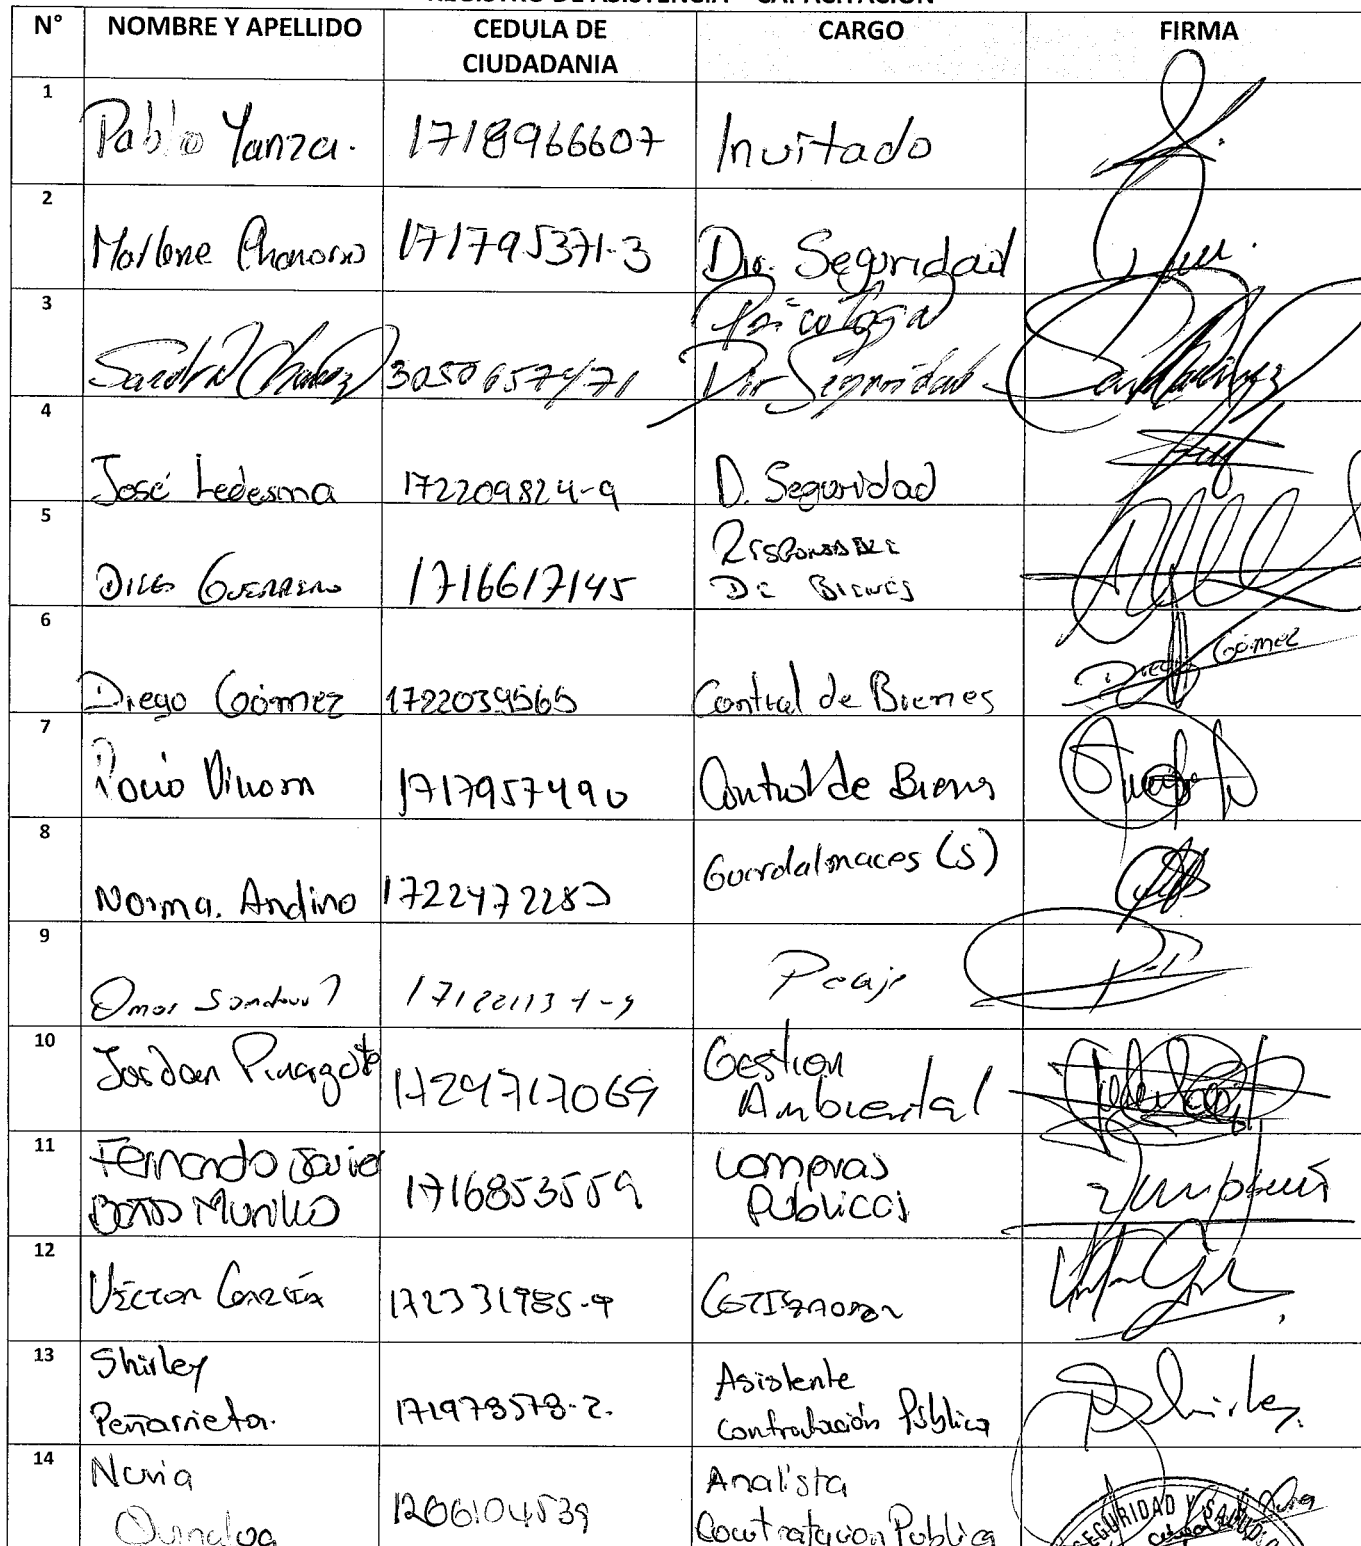 REGISTRO DE ASISTENCIA - CAPACITACIÓN
N° NOMBRE Y APELLIDO CEDULA DE CIUDADANIA CARGO FIRMA
1 Pablo Yanza. 1718966607 Invitado
2 Marlene 171795371-3 Dir. Seguridad
3 Sandra Chavez Psicologia
Dir Seguridad
4 José Ledesma 172209824-9 D. Seguridad
5 Diego Guerrero 1716617145 Responsable
De Bienes
6 Diego Gómez 1722039565 Control de Bienes Diego Gómez
7 Rocio 1717957490 Control de Bienes
8 Norma. Andino 1722472283 Guardalmaces (S)
9 Omar Sandoval Peaje
10 Jordan 1729717069 Gestion
Ambiental
11 Fernando Javier
Murillo 1716853559 Compras
Publicas
12 Víctor García 172331985-9
13 Shirley
Peñarrieta. 171978578-2. Asistente
Contratación Pública Shirley
14 Nuria 1206104539 Analista
Contratacion Publica
SEGURIDAD Y SALUD